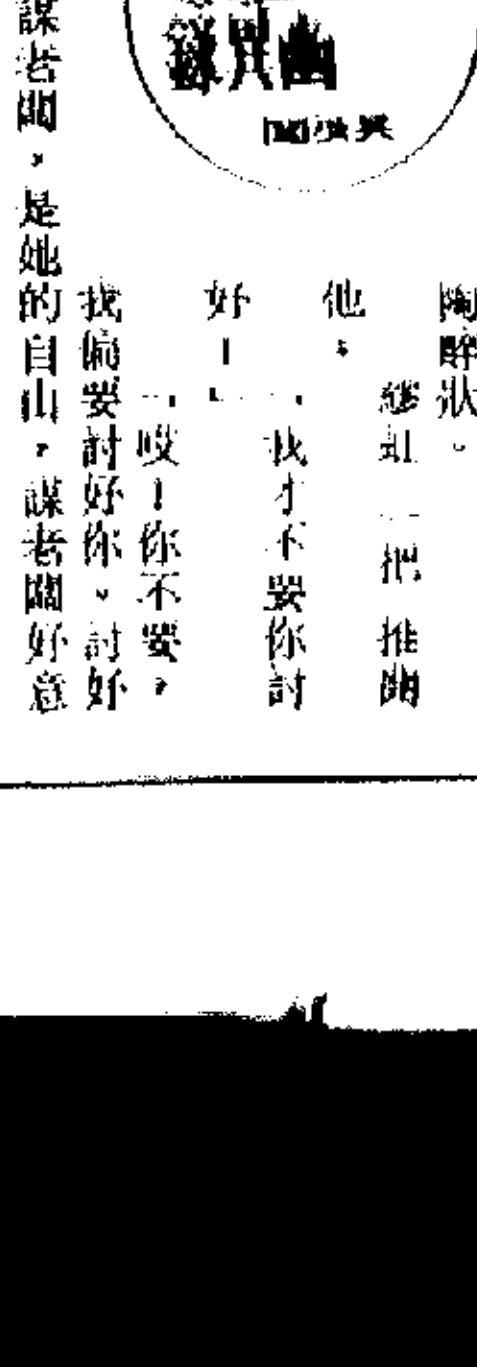 陶醉狀。
一把推開
他。
「我才不要你討
好!」
「哎!你不要,
我偏要討好你。討好
謀老闆,是她的自由,謀老闆好意